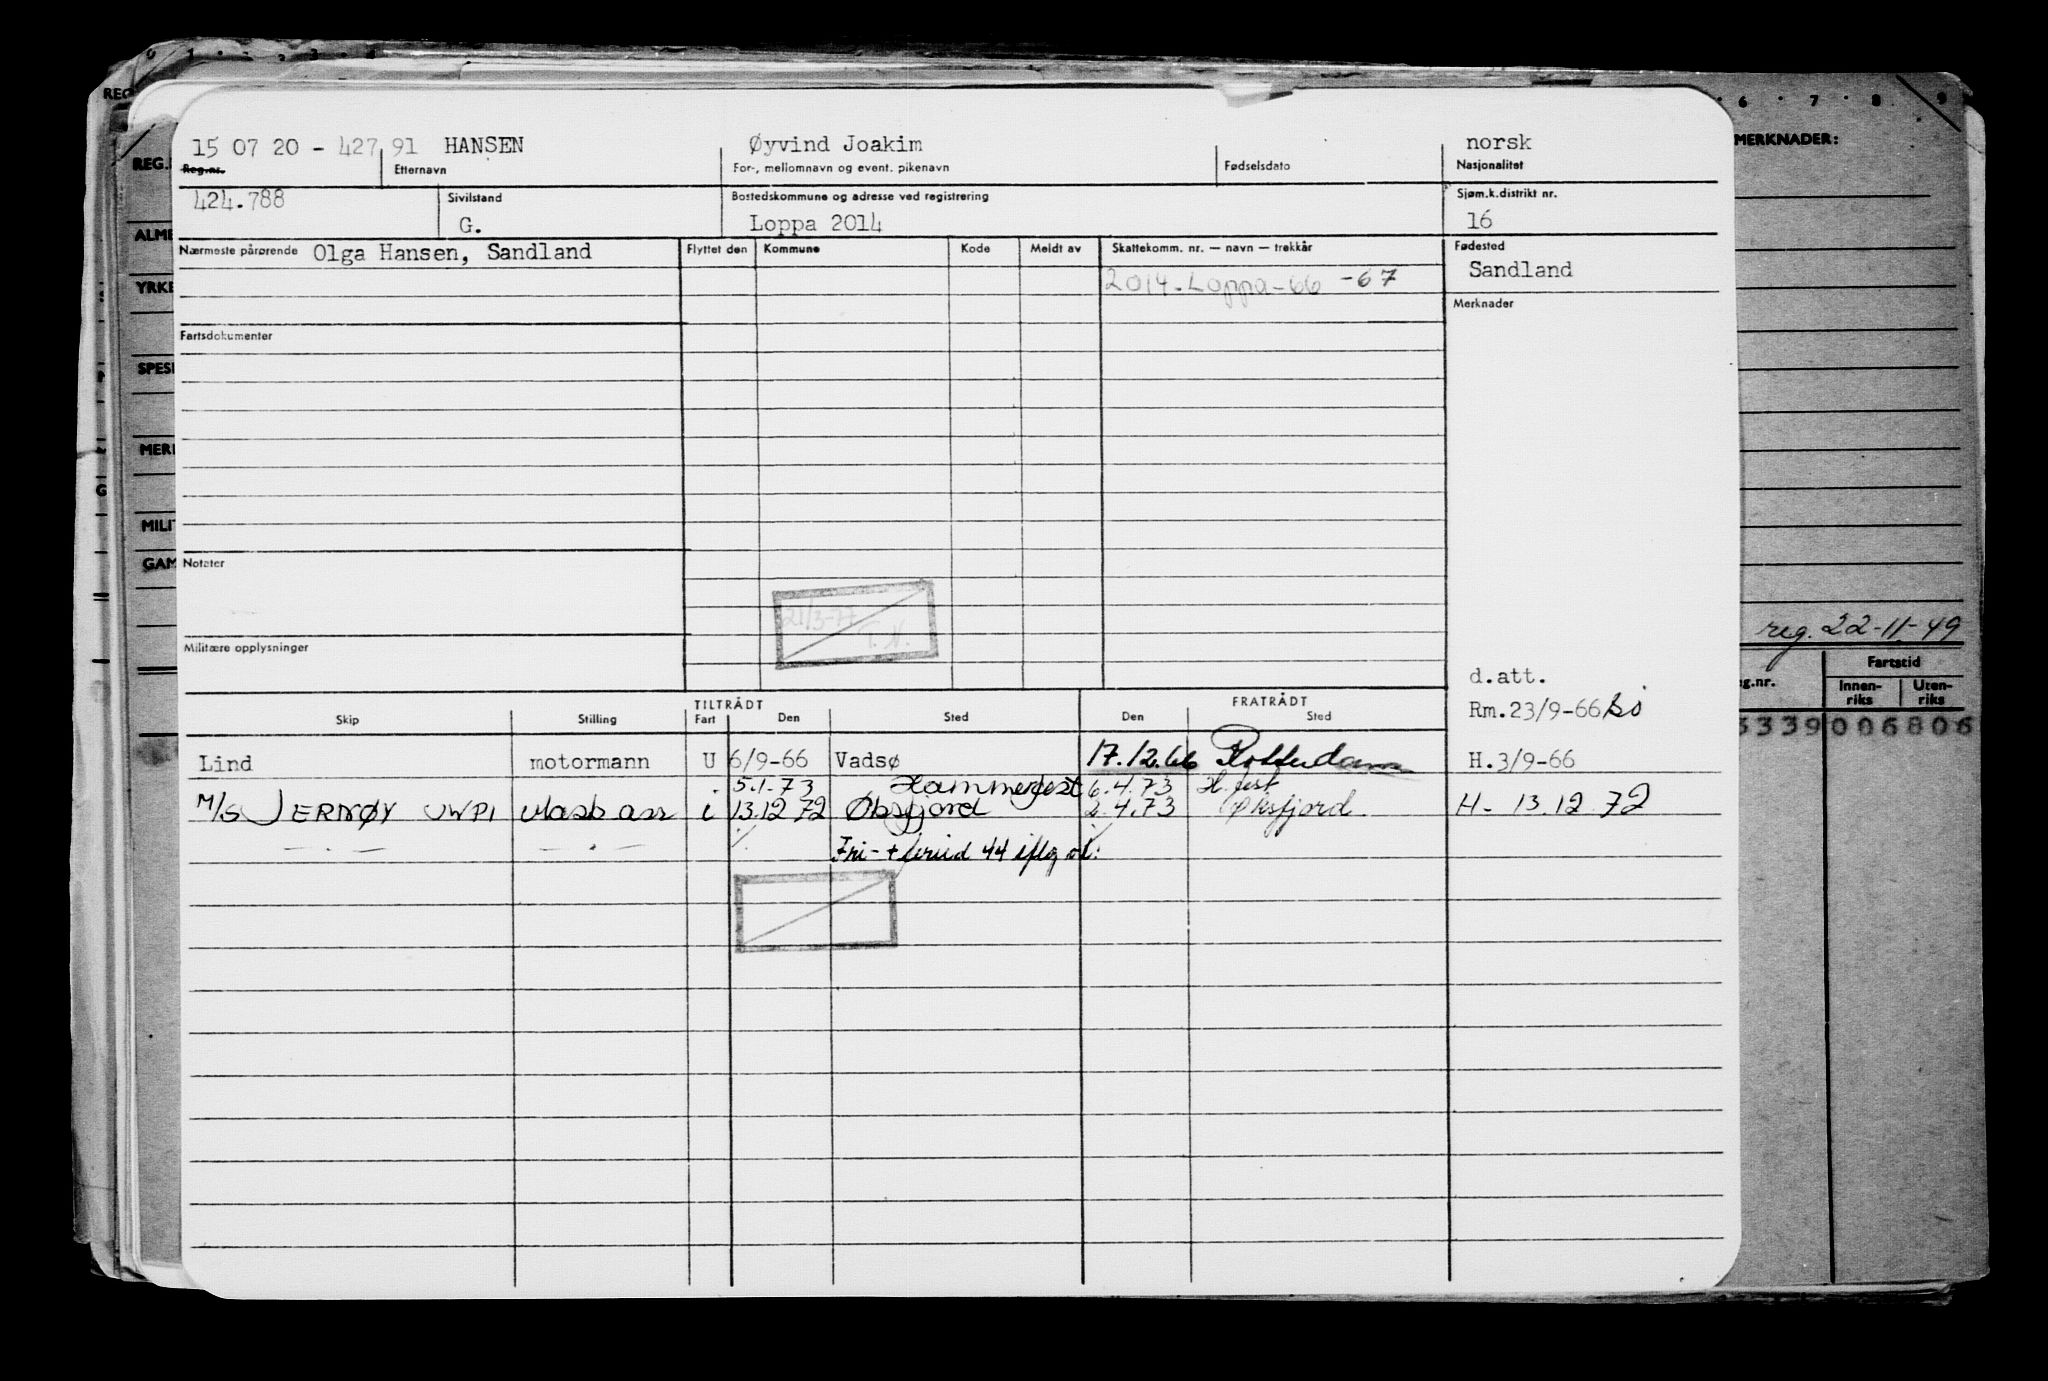 15 07 20 - 427 91 HANSEN Øyvind Joakim norsk
Reg.nr. Etternavn For-, mellomnavn og event. pikenavn Fødselsdato Nasjonalitet
424.788 Sivilstand Bostedskommune og adresse ved registrering Sjøm.k.distrikt nr.
G. Loppa 2014 16
Nærmeste pårørende Olga Hansen, Sandland Flyttet den Kommune Kode Meldt av Skattekomm. nr. — navn — trekkår Fødested
2014-Loppa-66 -67 Sandland
Merknader
Fartsdokumenter
Notater
21/3-77
T.N.
Militære opplysninger
d.att.
TILTRÅDT FRATRÅDT
Skip Stilling Fart Den Sted Den Sted
Rm.23/9-66
Lind motormann U 6/9-66 Vadsø 17.12.66 Rotterdam H.3/9-66
5.1.73 Hammerfest 6.4.73 H.fest
M/S JERNØY UWPI Mask ass i 13.12 72 Øksfjord 2.4.73 Øksfjord H- 13.12.72
— . — — . — Fri- + 44 iflg
REG
REG.
ALME
YRKE
SPESI
MERK
G
MILIT
GAM
6 7 8 9
MERKNADER:
reg. 22-11-49
Fartstid
g.nr. Innen-riks Uten-riks
3339 006806